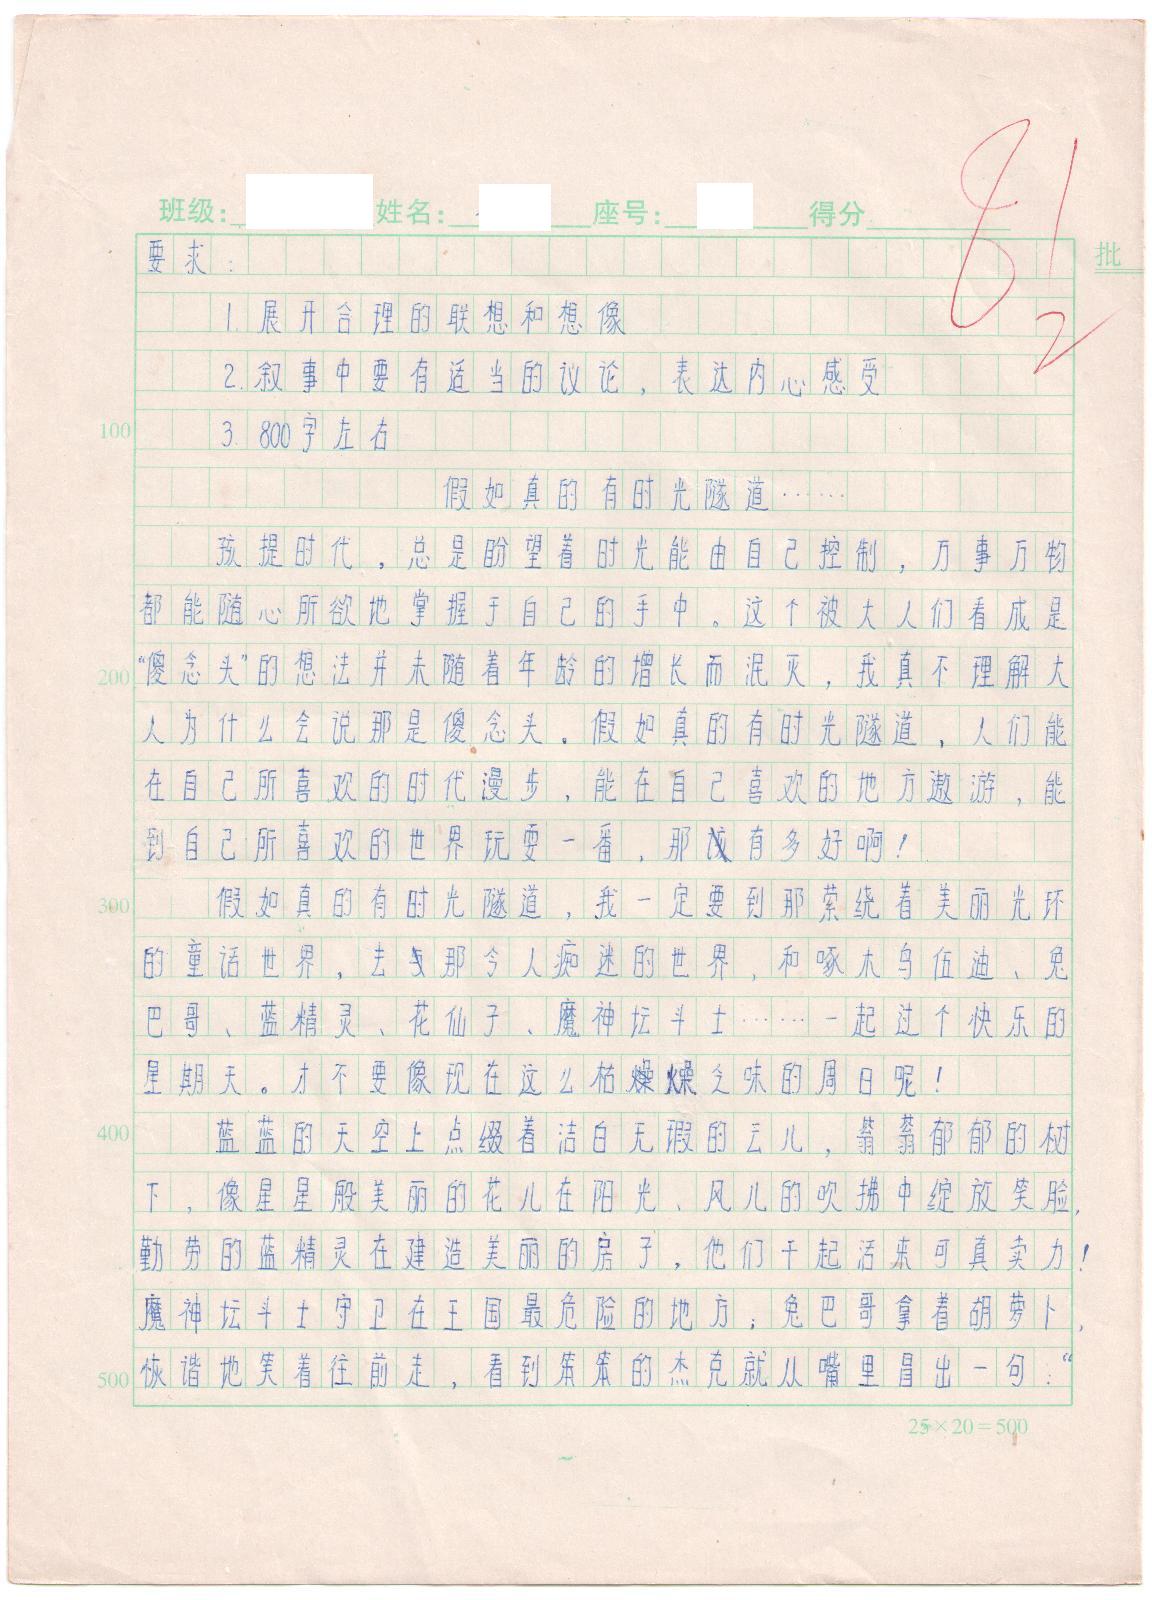 班级： 姓名： 座号： 得分
81
2
批
要求：
1. 展开合理的联想和想像
2. 叙事中要有适当的议论，表达内心感受
100
3. 800字左右
假如真的有时光隧道……
孩提时代，总是盼望着时光能由自己控制，万事万物
都能随心所欲地掌握于自己的手中。这个被大人们看成是
200
“傻念头”的想法并未随着年龄的增长而泯灭，我真不理解大
人为什么会说那是傻念头。假如真的有时光隧道，人们能
在自己所喜欢的时代漫步，能在自己喜欢的地方遨游，能
到自己所喜欢的世界玩耍一番，那该有多好啊！
300
假如真的有时光隧道，我一定要到那萦绕着美丽光环
的童话世界，去与那令人痴迷的世界，和啄木鸟伍迪、兔
巴哥、蓝精灵、花仙子、魔神坛斗士……一起过个快乐的
星期天。才不要像现在这么枯燥乏味的周日呢！
400
蓝蓝的天空上点缀着洁白无瑕的云儿，蓊蓊郁郁的树
下，像星星般美丽的花儿在阳光、风儿的吹拂中绽放笑脸，
勤劳的蓝精灵在建造美丽的房子，他们干起活来可真卖力！
魔神坛斗士守卫在王国最危险的地方；兔巴哥拿着胡萝卜，
500
恢谐地笑着往前走，看到笨笨的杰克就从嘴里冒出一句：“
25×20=500